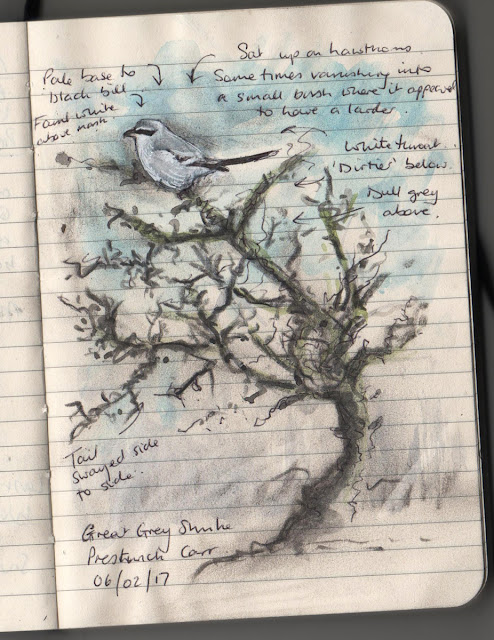 Sat up on hawthorns.
Sometimes vanishing into
a small bush where it appeared
to have a larder.
Pale base to
black bill
Faint white
above mask
White throat.
'Dirtier' below.
Dull grey
above.
Tail
swayed side
to side.
Great Grey Shrike
Prestwick Carr
06/02/17